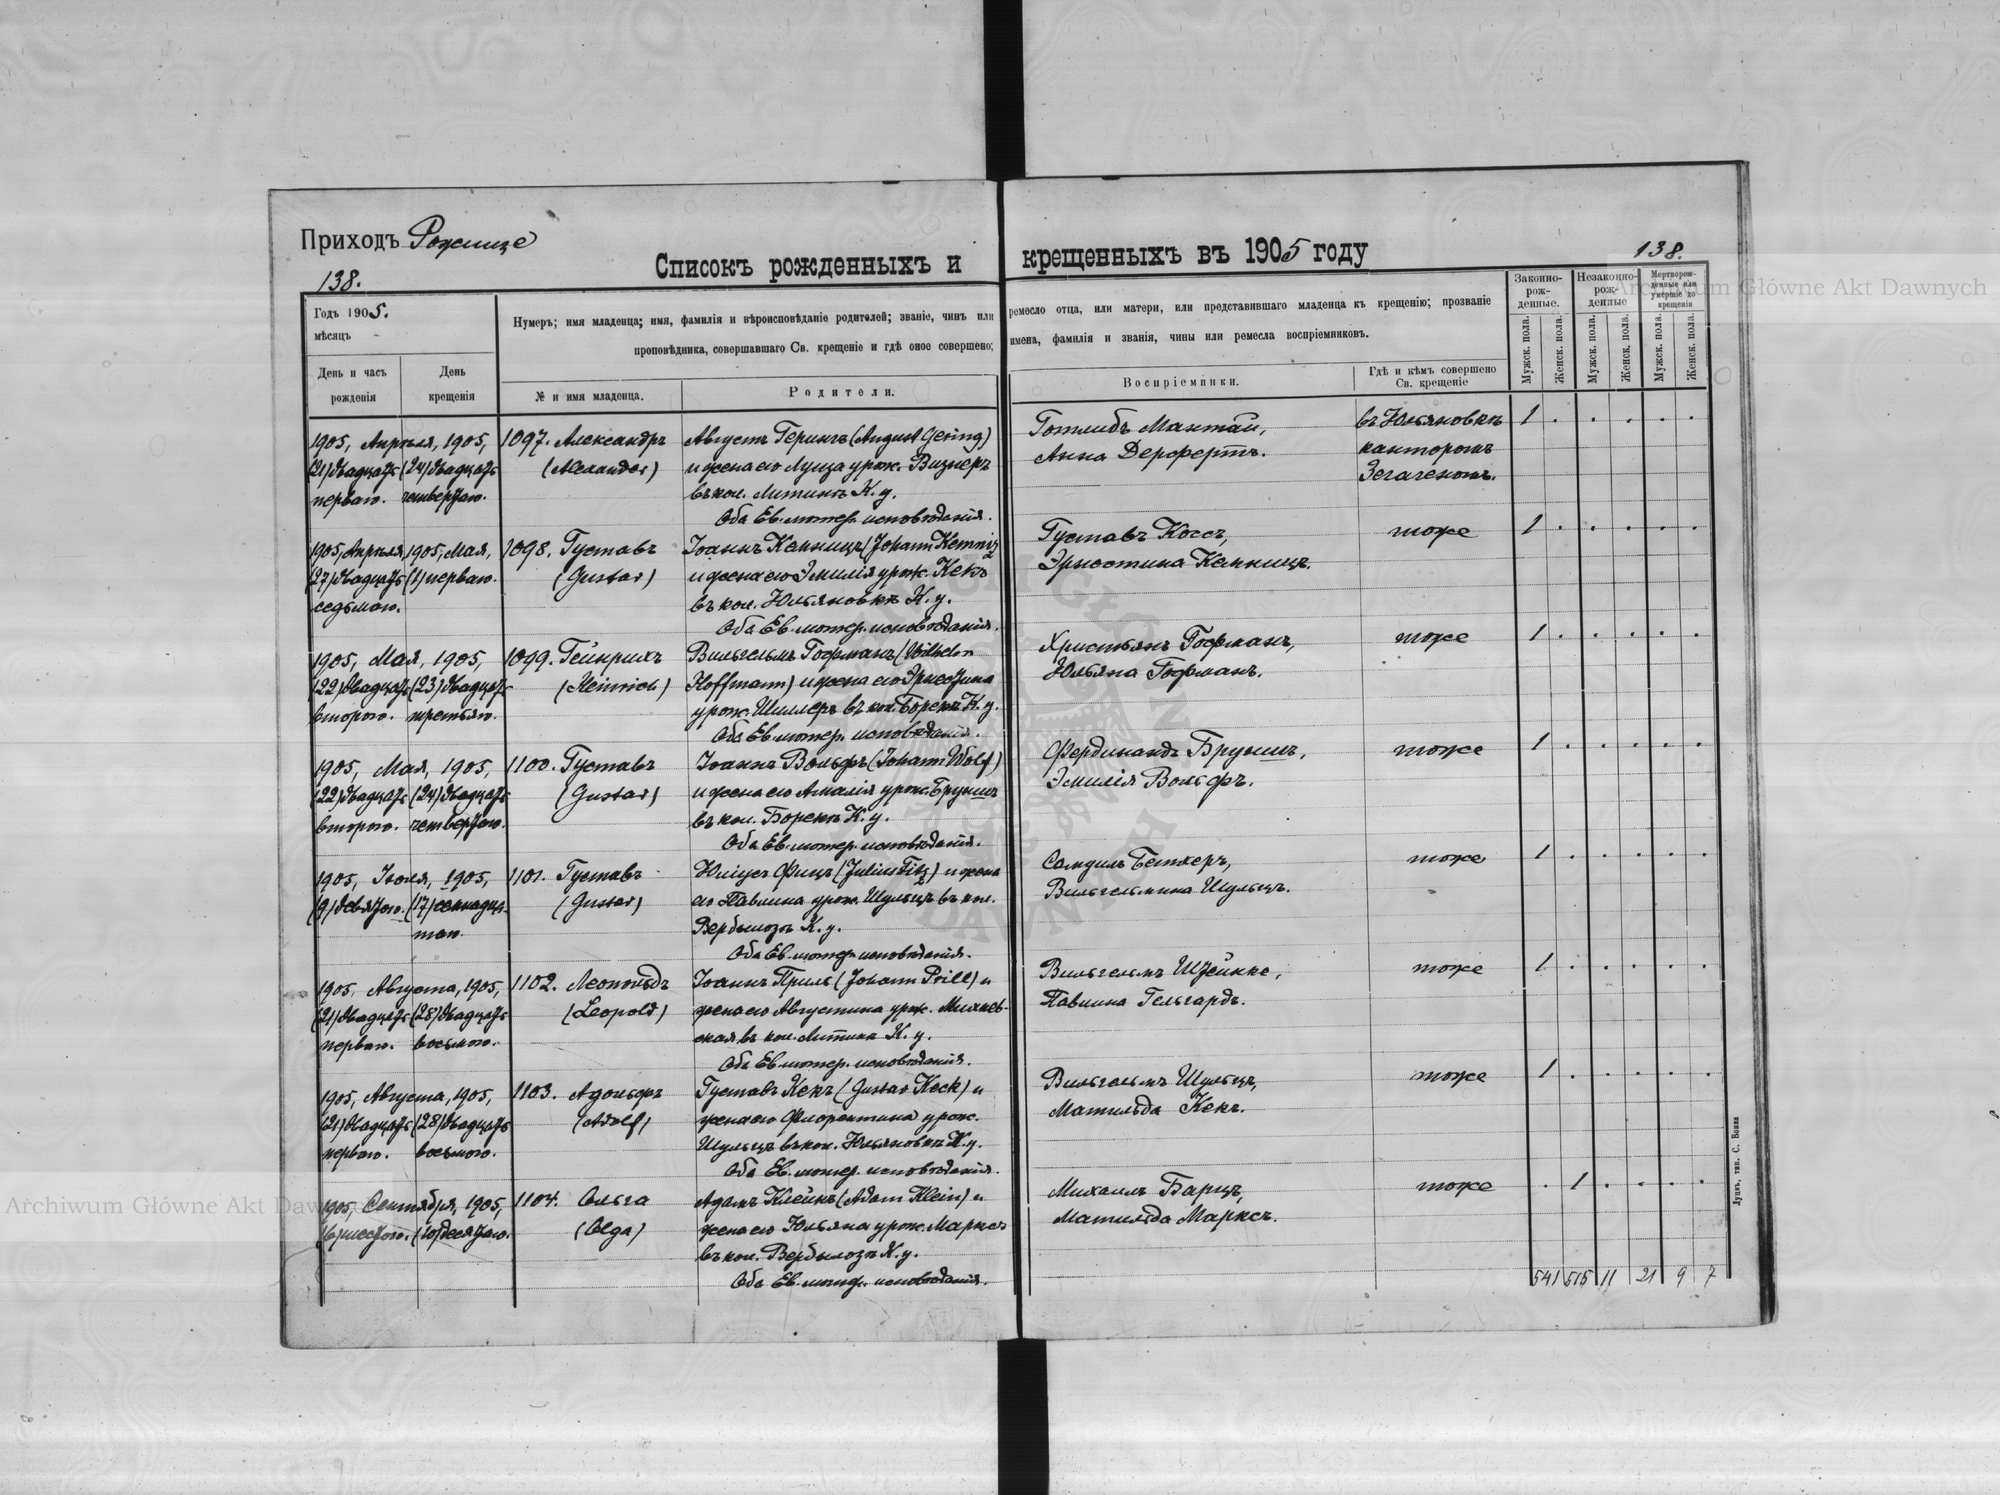 Приходъ Рожище
138.
Списокъ рожденныхъ и крещенныхъ въ 1905 году
138.
Годъ 1905.
мѣсяцъ
День и часъ рожденія
День крещенія
Нумеръ; имя младенца; имя, фамилія и вѣроисповѣданіе родителей; званіе, чинъ или ремесло отца, или матери, или представившаго младенца къ крещенію; прозваніе
проповѣдника, совершавшаго Св. крещеніе и гдѣ оное совершено; имена, фамилія и званія, чины или ремесла воспріемниковъ.
№ и имя младенца.
Родители.
Воспріемники.
Гдѣ и кѣмъ совершено Св. крещеніе
Законно-рож-денные.
Незаконно-рож-денные
Мертворож-денные или умершіе до крещенія
Мужск. пола.
Женск. пола.
Мужск. пола.
Женск. пола.
Мужск. пола.
Женск. пола.
1905, Апрѣля, 1905, 1097. Александръ Августъ Герингъ (August Gering) Готлибъ Мантай, въ Юльяновкѣ 1 . . . . .
(21) двадцать (24) двадцать (Alexander) и жена его Луиза урож. Визнеръ Анна Дерферть. канторомъ
перваго. четвертаго. въ кол. Литинъ К. у. Зегагеномъ.
Оба Ев. лютер. исповѣданія.
1905, Апрѣля, 1905, Мая, 1098. Густавъ Іоаннъ Кемницъ (Johann Kemniz) Густавъ Коссъ, тоже 1 . . . . .
(27) двадцать (1) перваго. (Gustav) и жена его Эмилія урож. Кекъ Эрнестина Кемницъ.
седьмого. въ кол. Юльяновкѣ К. у.
Оба Ев. лютер. исповѣданія.
1905, Мая, 1905, 1099. Гейнрихъ Вильгельмъ Гофманъ (Wilhelm Христьянъ Гофманъ, тоже 1 . . . . .
(22) двадцать (23) двадцать (Heinrich) Hoffmann) и жена его Эрнестина Юльяна Гофманъ.
второго. третьяго. урож. Шиллеръ въ кол. Борекъ К. у.
Оба Ев. лютер. исповѣданія.
1905, Мая, 1905, 1100. Густавъ Іоаннъ Вольфъ (Johann Wolf) Фердинандъ Брушъ, тоже 1 . . . . .
(22) двадцать (24) двадцать (Gustav) и жена его Амалія урож. Брушъ Эмилія Вольфъ.
второго. четвертаго. въ кол. Борекъ К. у.
Оба Ев. лютер. исповѣданія.
1905, Іюля, 1905, 1101. Густавъ Юліусъ Фицъ (Julius Fitz) и жена Самуилъ Беткеръ, тоже 1 . . . . .
(9) девятаго. (17) семнадца- (Gustav) его Павлина урож. Шульцъ въ кол. Вильгельмина Шульцъ.
таго. Вербылозъ К. у.
Оба Ев. лютер. исповѣданія.
1905, Августа, 1905, 1102. Леопольдъ Іоаннъ Приль (Johann Prill) и Вильгельмъ Штейнке, тоже 1 . . . . .
(21) двадцать (28) двадцать (Leopold) жена его Августина урож. Михаев- Павлина Гельгардъ.
перваго. восьмого. ская въ кол. Литинъ К. у.
Оба Ев. лютер. исповѣданія.
1905, Августа, 1905, 1103. Адольфъ Густавъ Кекъ (Gustav Keck) и Вильгельмъ Шульцъ, тоже 1 . . . . .
(21) двадцать (28) двадцать (Adolf) жена его Флорентина урож. Матильда Кекъ.
перваго. восьмого. Шульцъ въ кол. Юльяновкѣ К. у.
Оба Ев. лютер. исповѣданія.
1905, Сентября, 1905, 1104. Ольга Адамъ Клейнъ (Adam Klein) и Михаилъ Барцъ, тоже . 1 . . . .
(6) шестого. (10) десятаго. (Olga) жена его Юльяна урож. Марксъ Матильда Марксъ.
въ кол. Вербылозъ К. у.
Оба Ев. лютер. исповѣданія.
541 515 11 21 9 7
Луцкъ, тип. С. Бонка
Archiwum Główne Akt Dawnych
Archiwum Główne Akt Dawnych